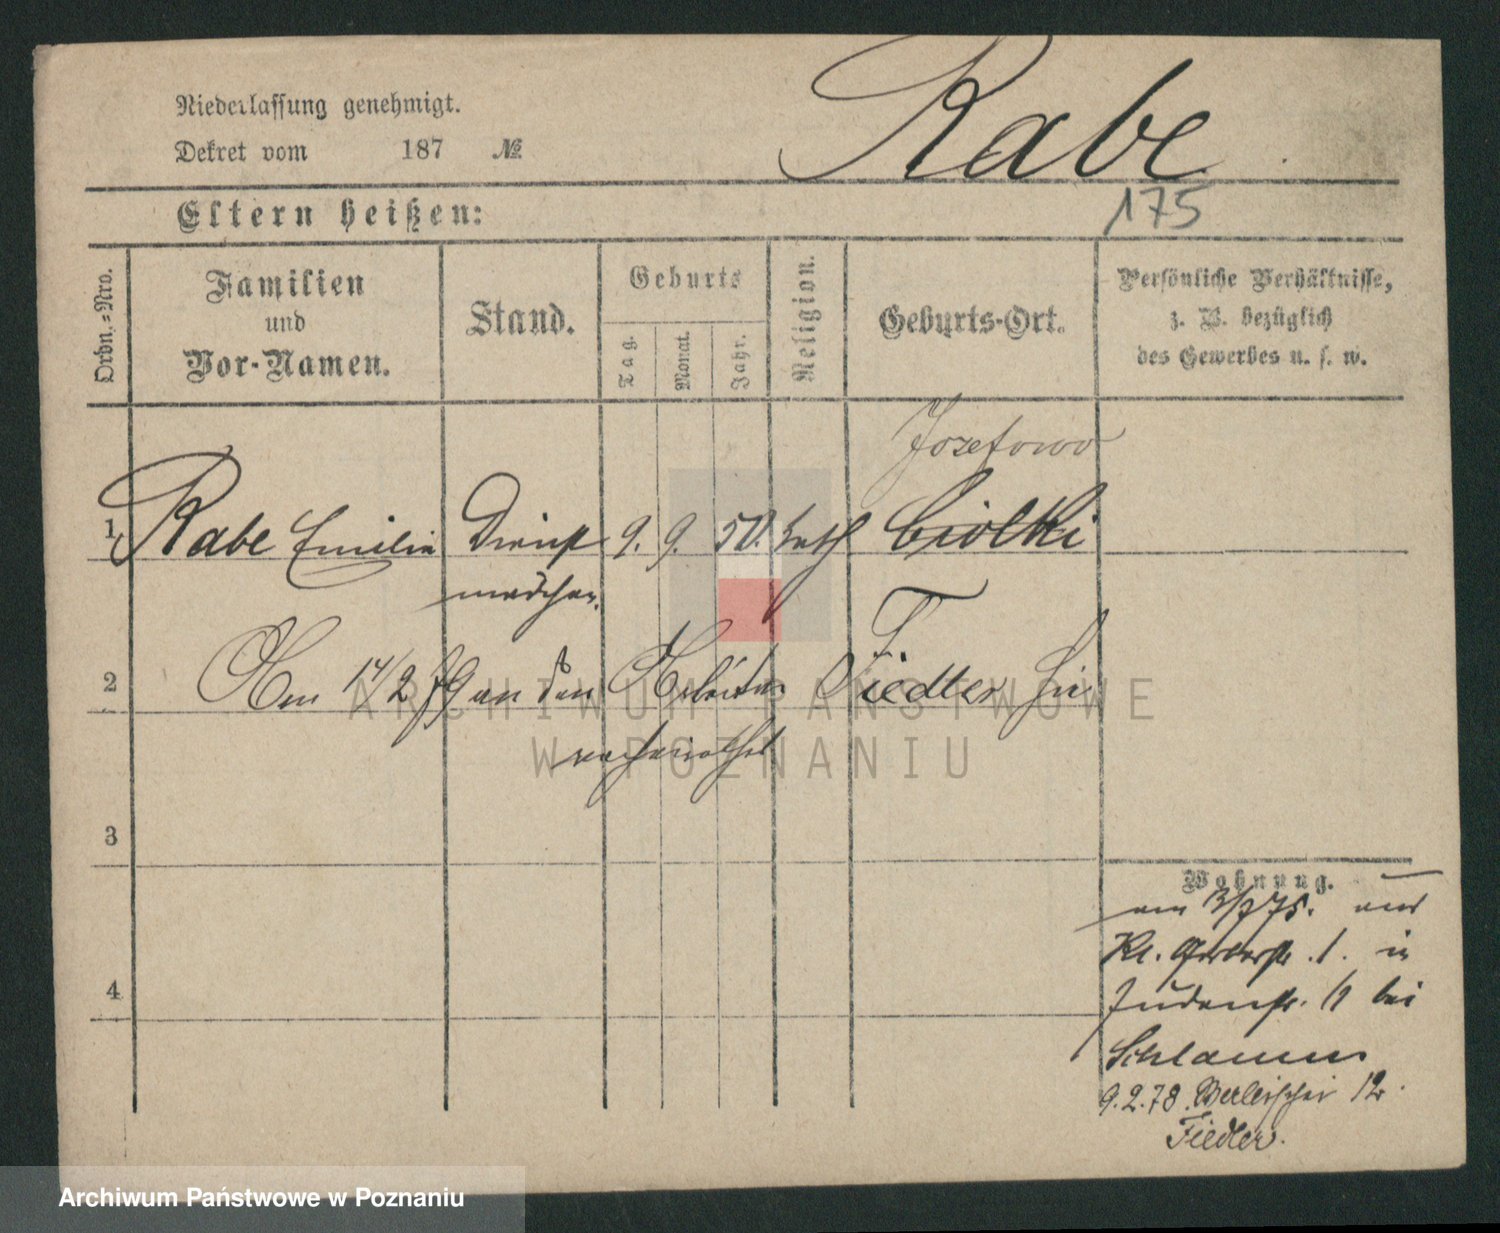 Rabe
Niederlassung genehmigt.
Dekret vom 187 №
175
Eltern heißen:
Ordn.-Nro.
Familien
und
Vor-Namen.
Stand.
Geburts
Tag.
Monat.
Jahr.
Religion.
Geburts-Ort.
Persönliche Verhältnisse,
z. B. bezüglich
des Gewerbes u. s. w.
Jozefowo
1 Rabe Emilie Dienst 9. 9. 50. kath Ciolki
mädchen.
2 Am 14/2 79 an den Arbeiter Fiedler hier
verheirathet
3
Wohnung.
am 3/7 75. aus
Kl. Gerberstr. 1. in
4
Judenstr. 11 bei
Schlamm
9.2.78. 12.
Fiedler.
ARCHIWUM PAŃSTWOWE
W POZNANIU
Archiwum Państwowe w Poznaniu